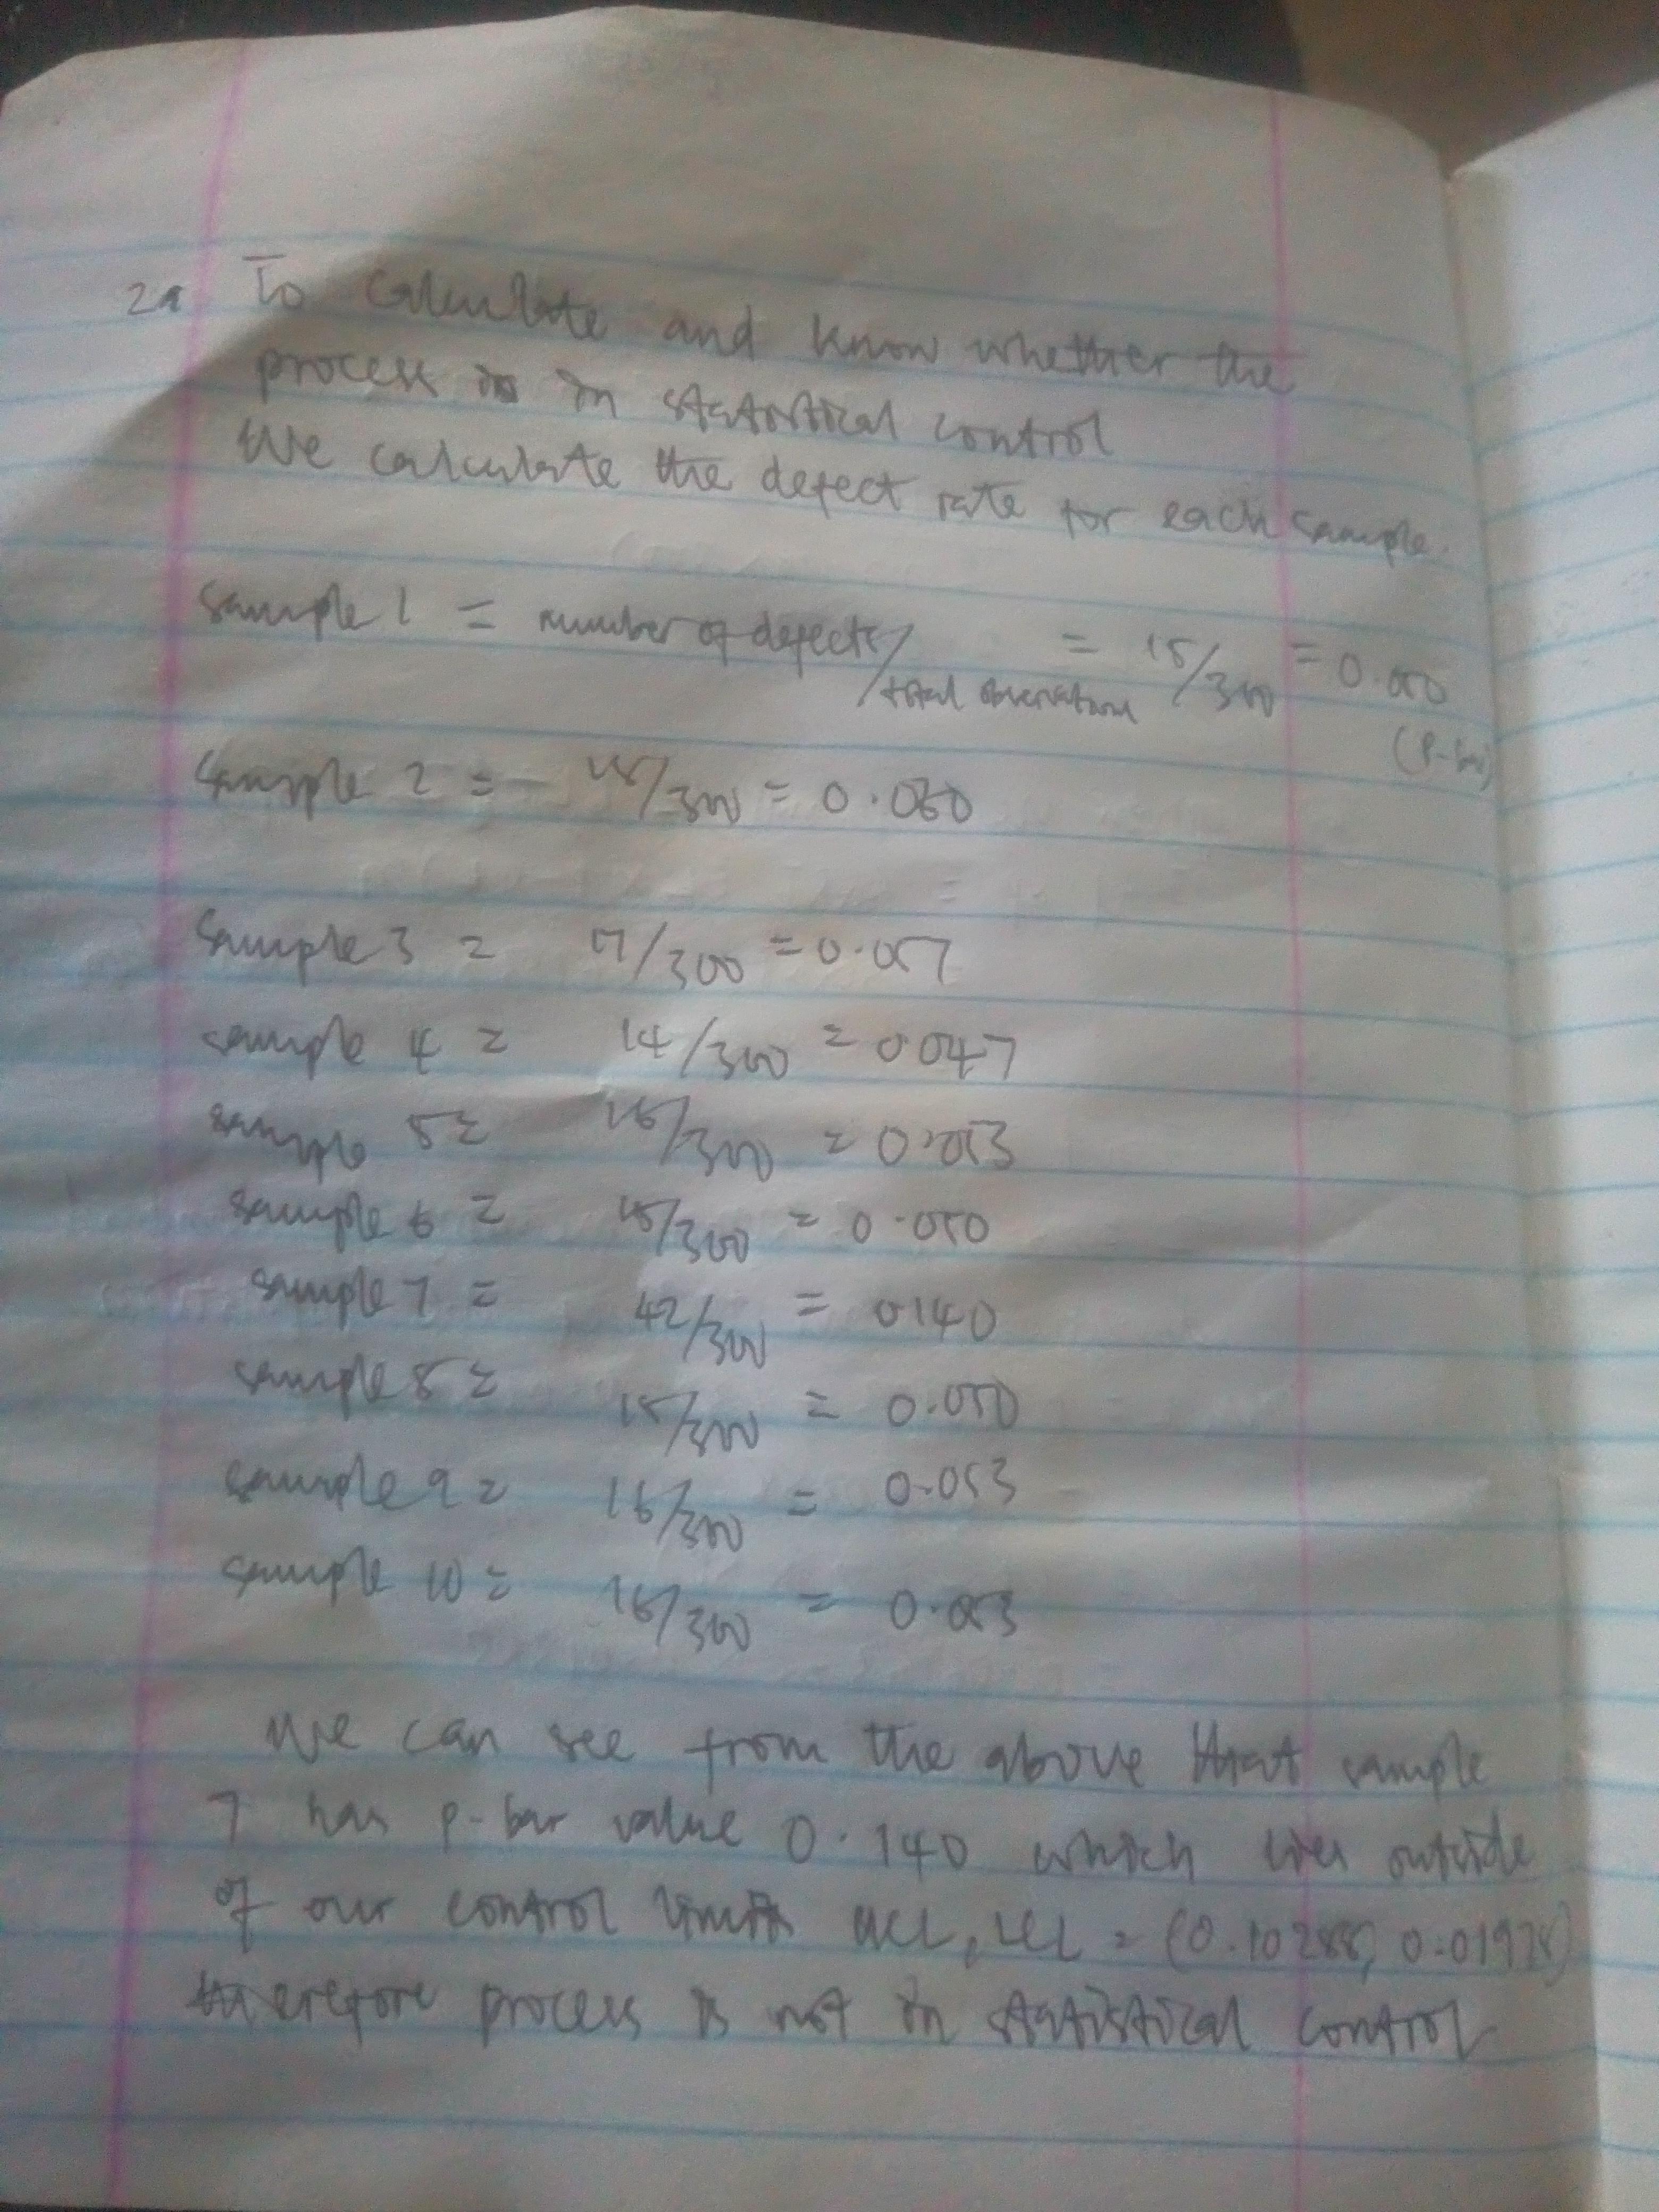 2a To calculate and know whether the
process is in statistical control
We calculate the defect rate for each sample.
sample 1 = number of defects/total observations = 15/300 = 0.050
(P-bar)
Sample 2 = 18/300 = 0.060
Sample 3 = 17/300 = 0.057
sample 4 = 14/300 = 0.047
sample 5 = 16/300 = 0.053
sample 6 = 15/300 = 0.050
sample 7 = 42/300 = 0.140
sample 8 = 15/300 = 0.050
sample 9 = 16/300 = 0.053
sample 10 = 16/300 = 0.053
We can see from the above that sample
7 has p-bar value 0.140 which lies outside
of our control limits UCL, LCL = (0.10288, 0.01978)
therefore process is not in statistical control